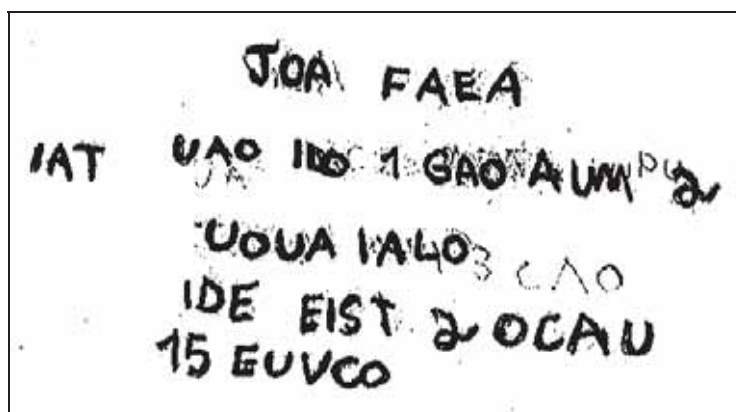 JOA FAEA
IAT UAO IDO 1 GAO A UM 2
UOUA IALO 3 CAO
IDE EIST 2 OCAU
15 EUVCO